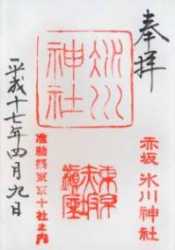 奉拝
赤坂 氷川神社
氷川
神社
東京
赤坂
鎮座
准勅祭東京十社之内
平成十七年四月九日